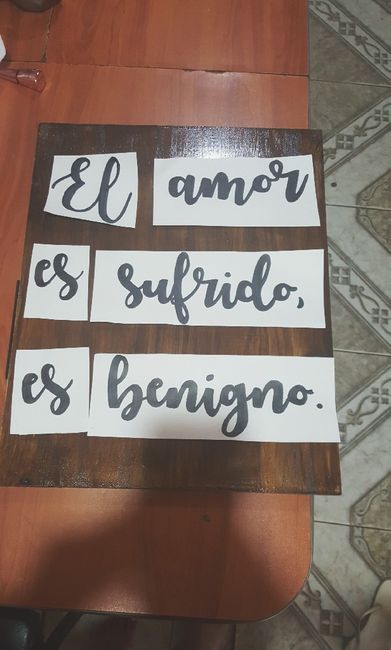 El amor
es sufrido,
es benigno.